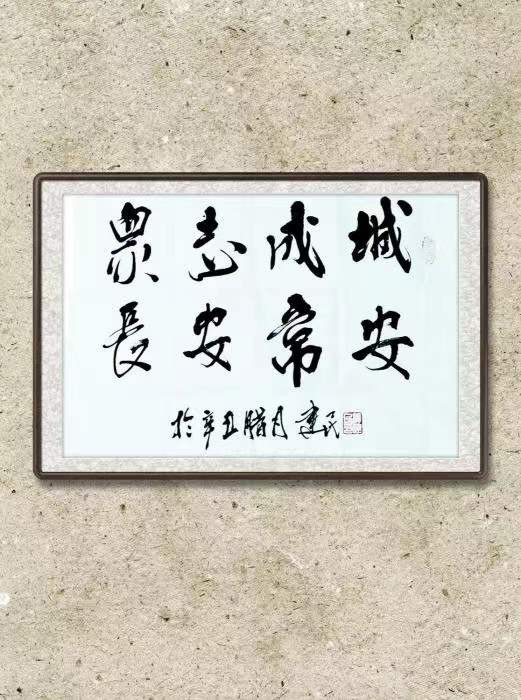 眾志成城
長安常安
於辛丑腊月建民